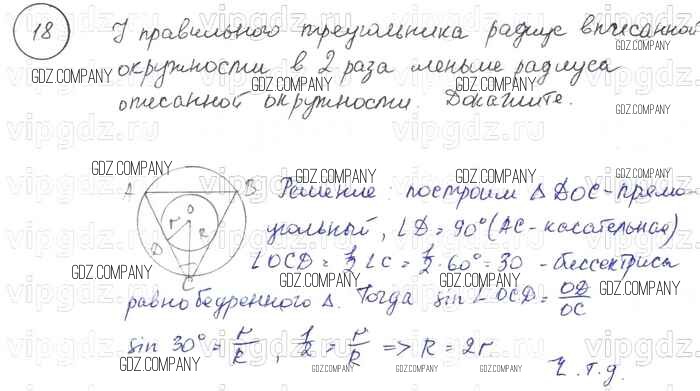 18 У правильного треугольника радиус вписанной
окружности в 2 раза меньше радиуса
описанной окружности. Докажите.
A B O r R D C
Решение: построим △ DOC - прямо
угольный, ∠D = 90° (AC - касательная)
∠OCD = 1/2 ∠C = 1/2 · 60° = 30 - биссектриса
равнобедренного △. Тогда sin ∠OCD = OD/OC
sin 30° = r/R, 1/2 = r/R => R = 2r
Ч.т.д.
GDZ.COMPANY
vipgdz.ru